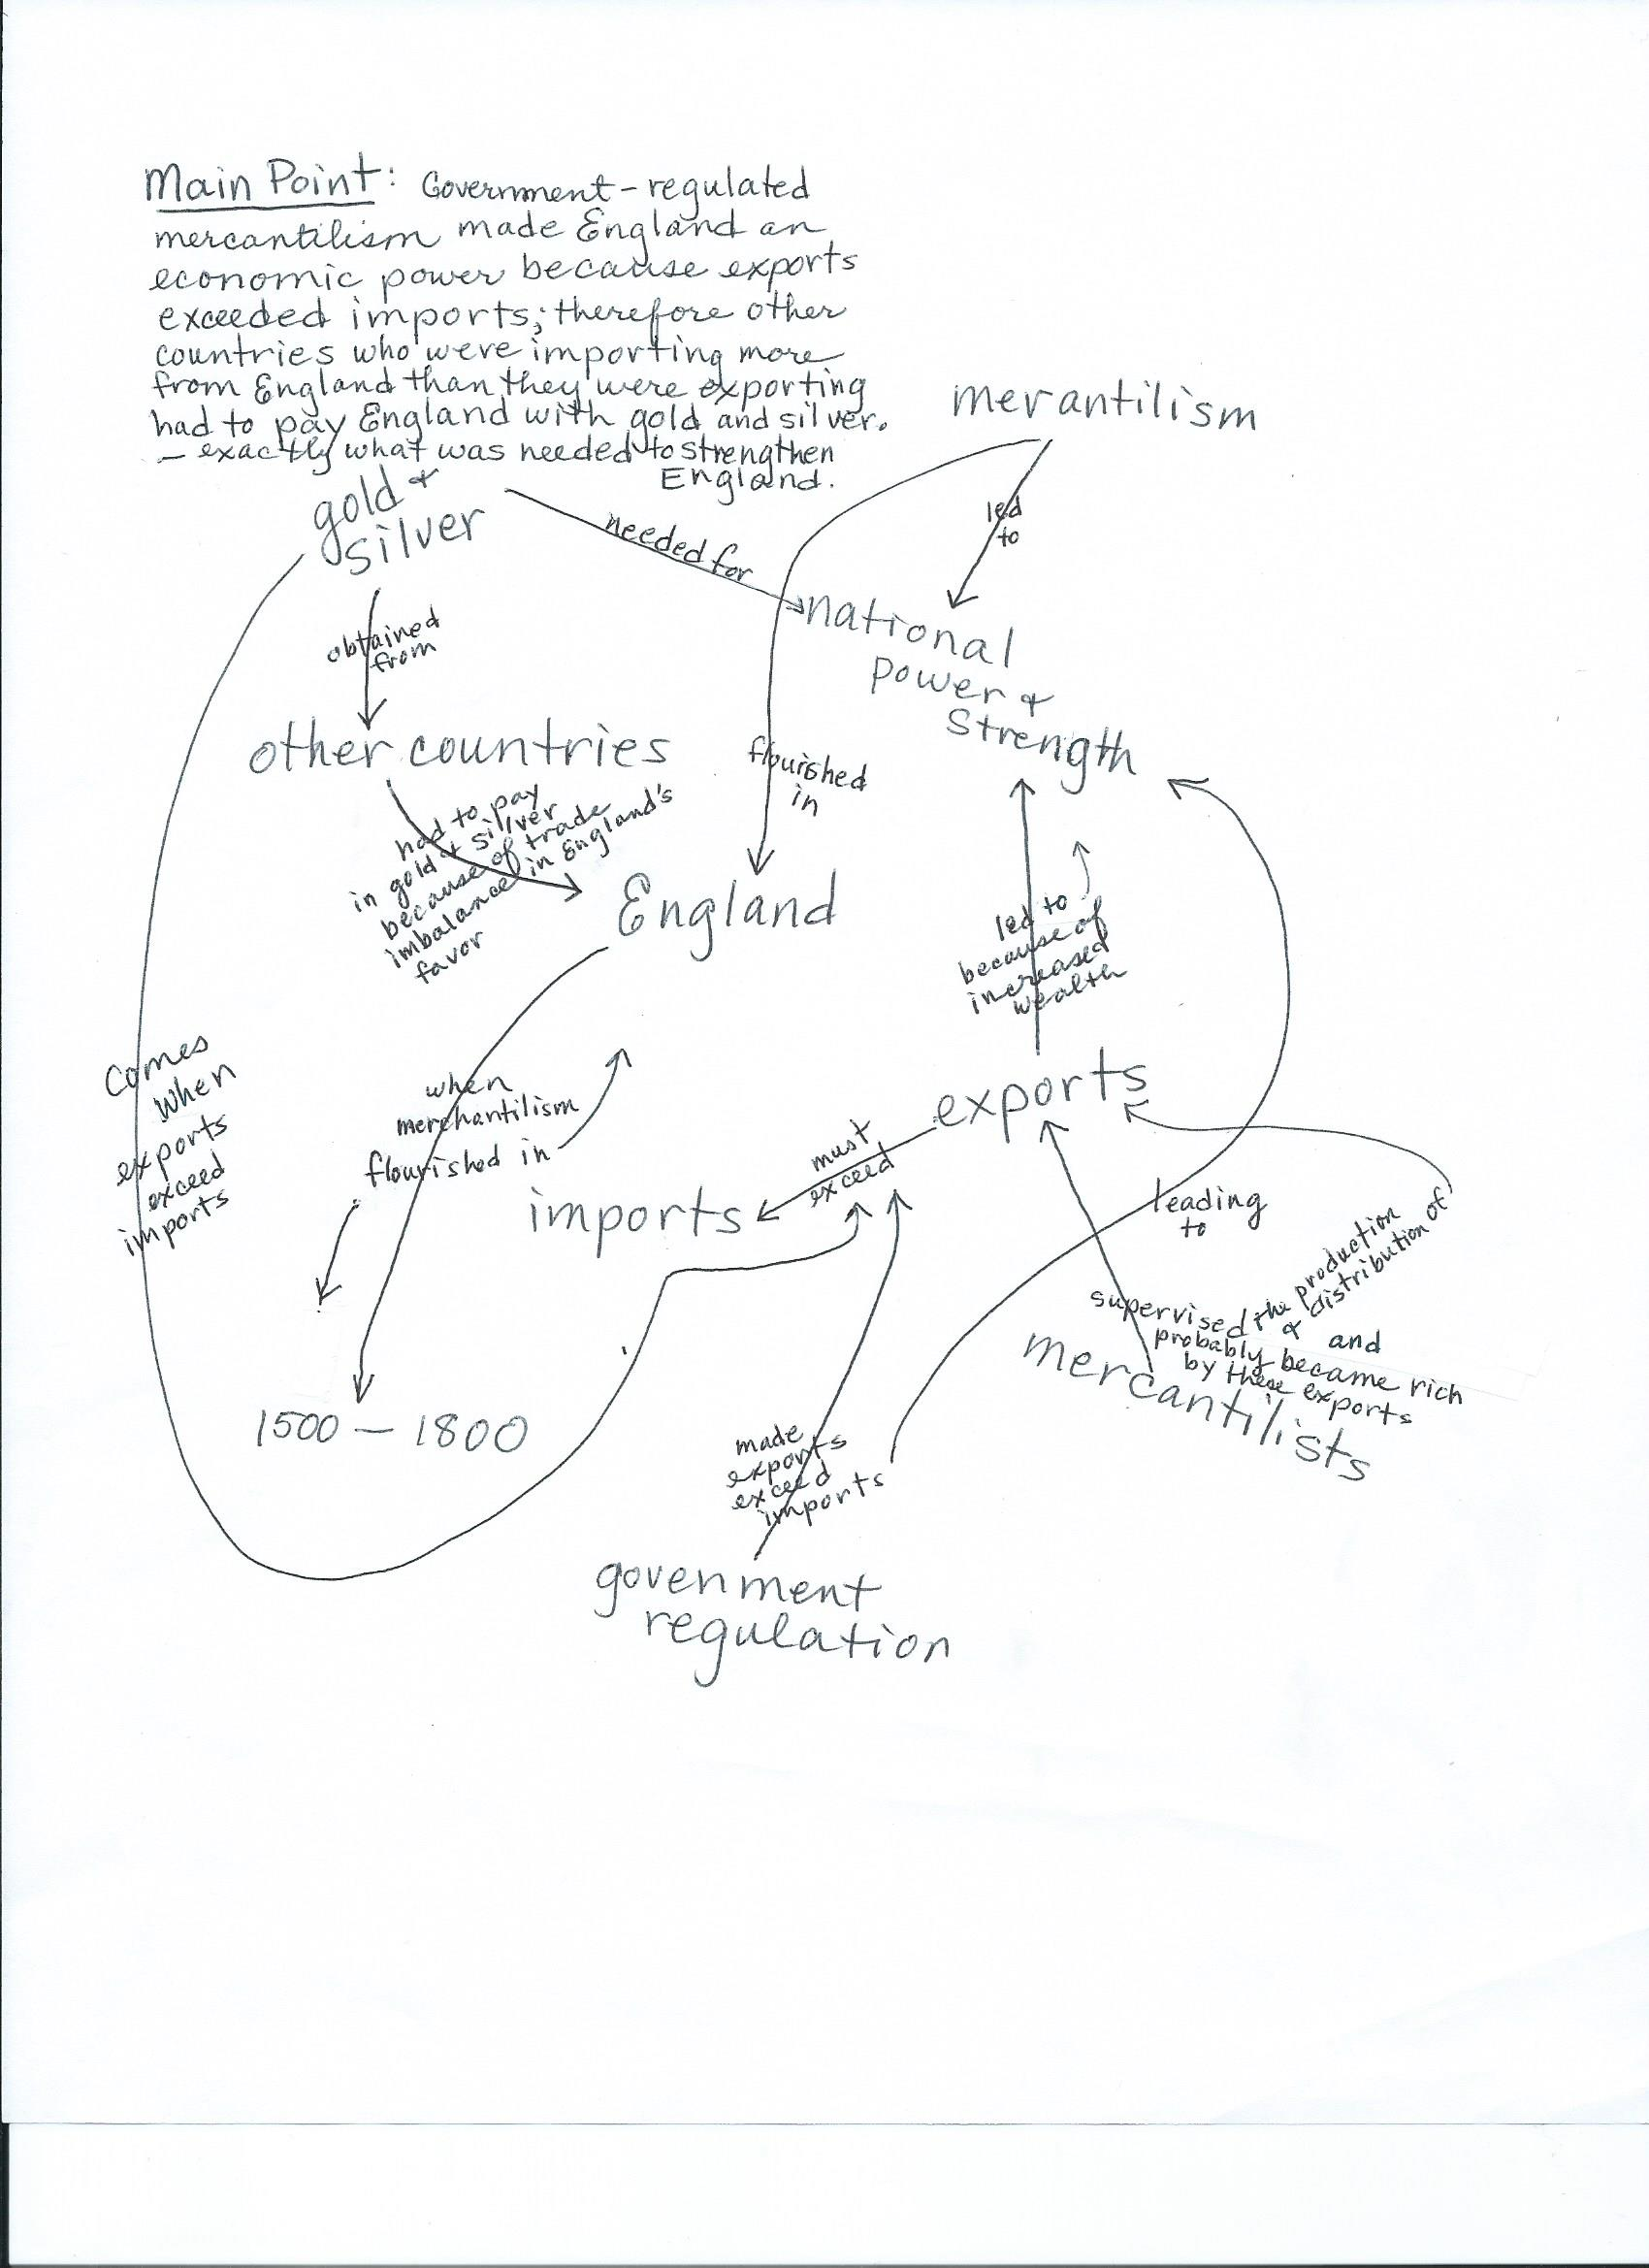 Main Point: Government-regulated
mercantilism made England an
economic power because exports
exceeded imports; therefore other
countries who were importing more
from England than they were exporting
had to pay England with gold and silver.
— exactly what was needed to strengthen
England.
merantilism
gold &
silver
needed for
led
to
national
power &
strength
obtained
from
other countries
flourished
in
had to pay
in gold & silver
because of trade
imbalance in England's
favor
England
led to
because of
increased
wealth
comes
when
exports
exceed
imports
when
merchantilism
flourished in
exports
must
exceed
imports
leading
to
supervised the production
& distribution of
and
probably became rich
by these exports
mercantilists
1500 — 1800
made
exports
exceed
imports
govenment
regulation